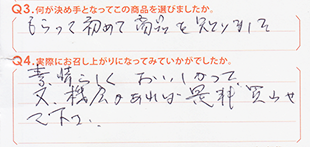 Q3.何が決め手となってこの商品を選びましたか。
もらって初めて商品を知りまして
Q4.実際にお召し上がりになってみていかがでしたか。
素晴らしくおいしかって
又、機会があれば是非買わせ
て下さい